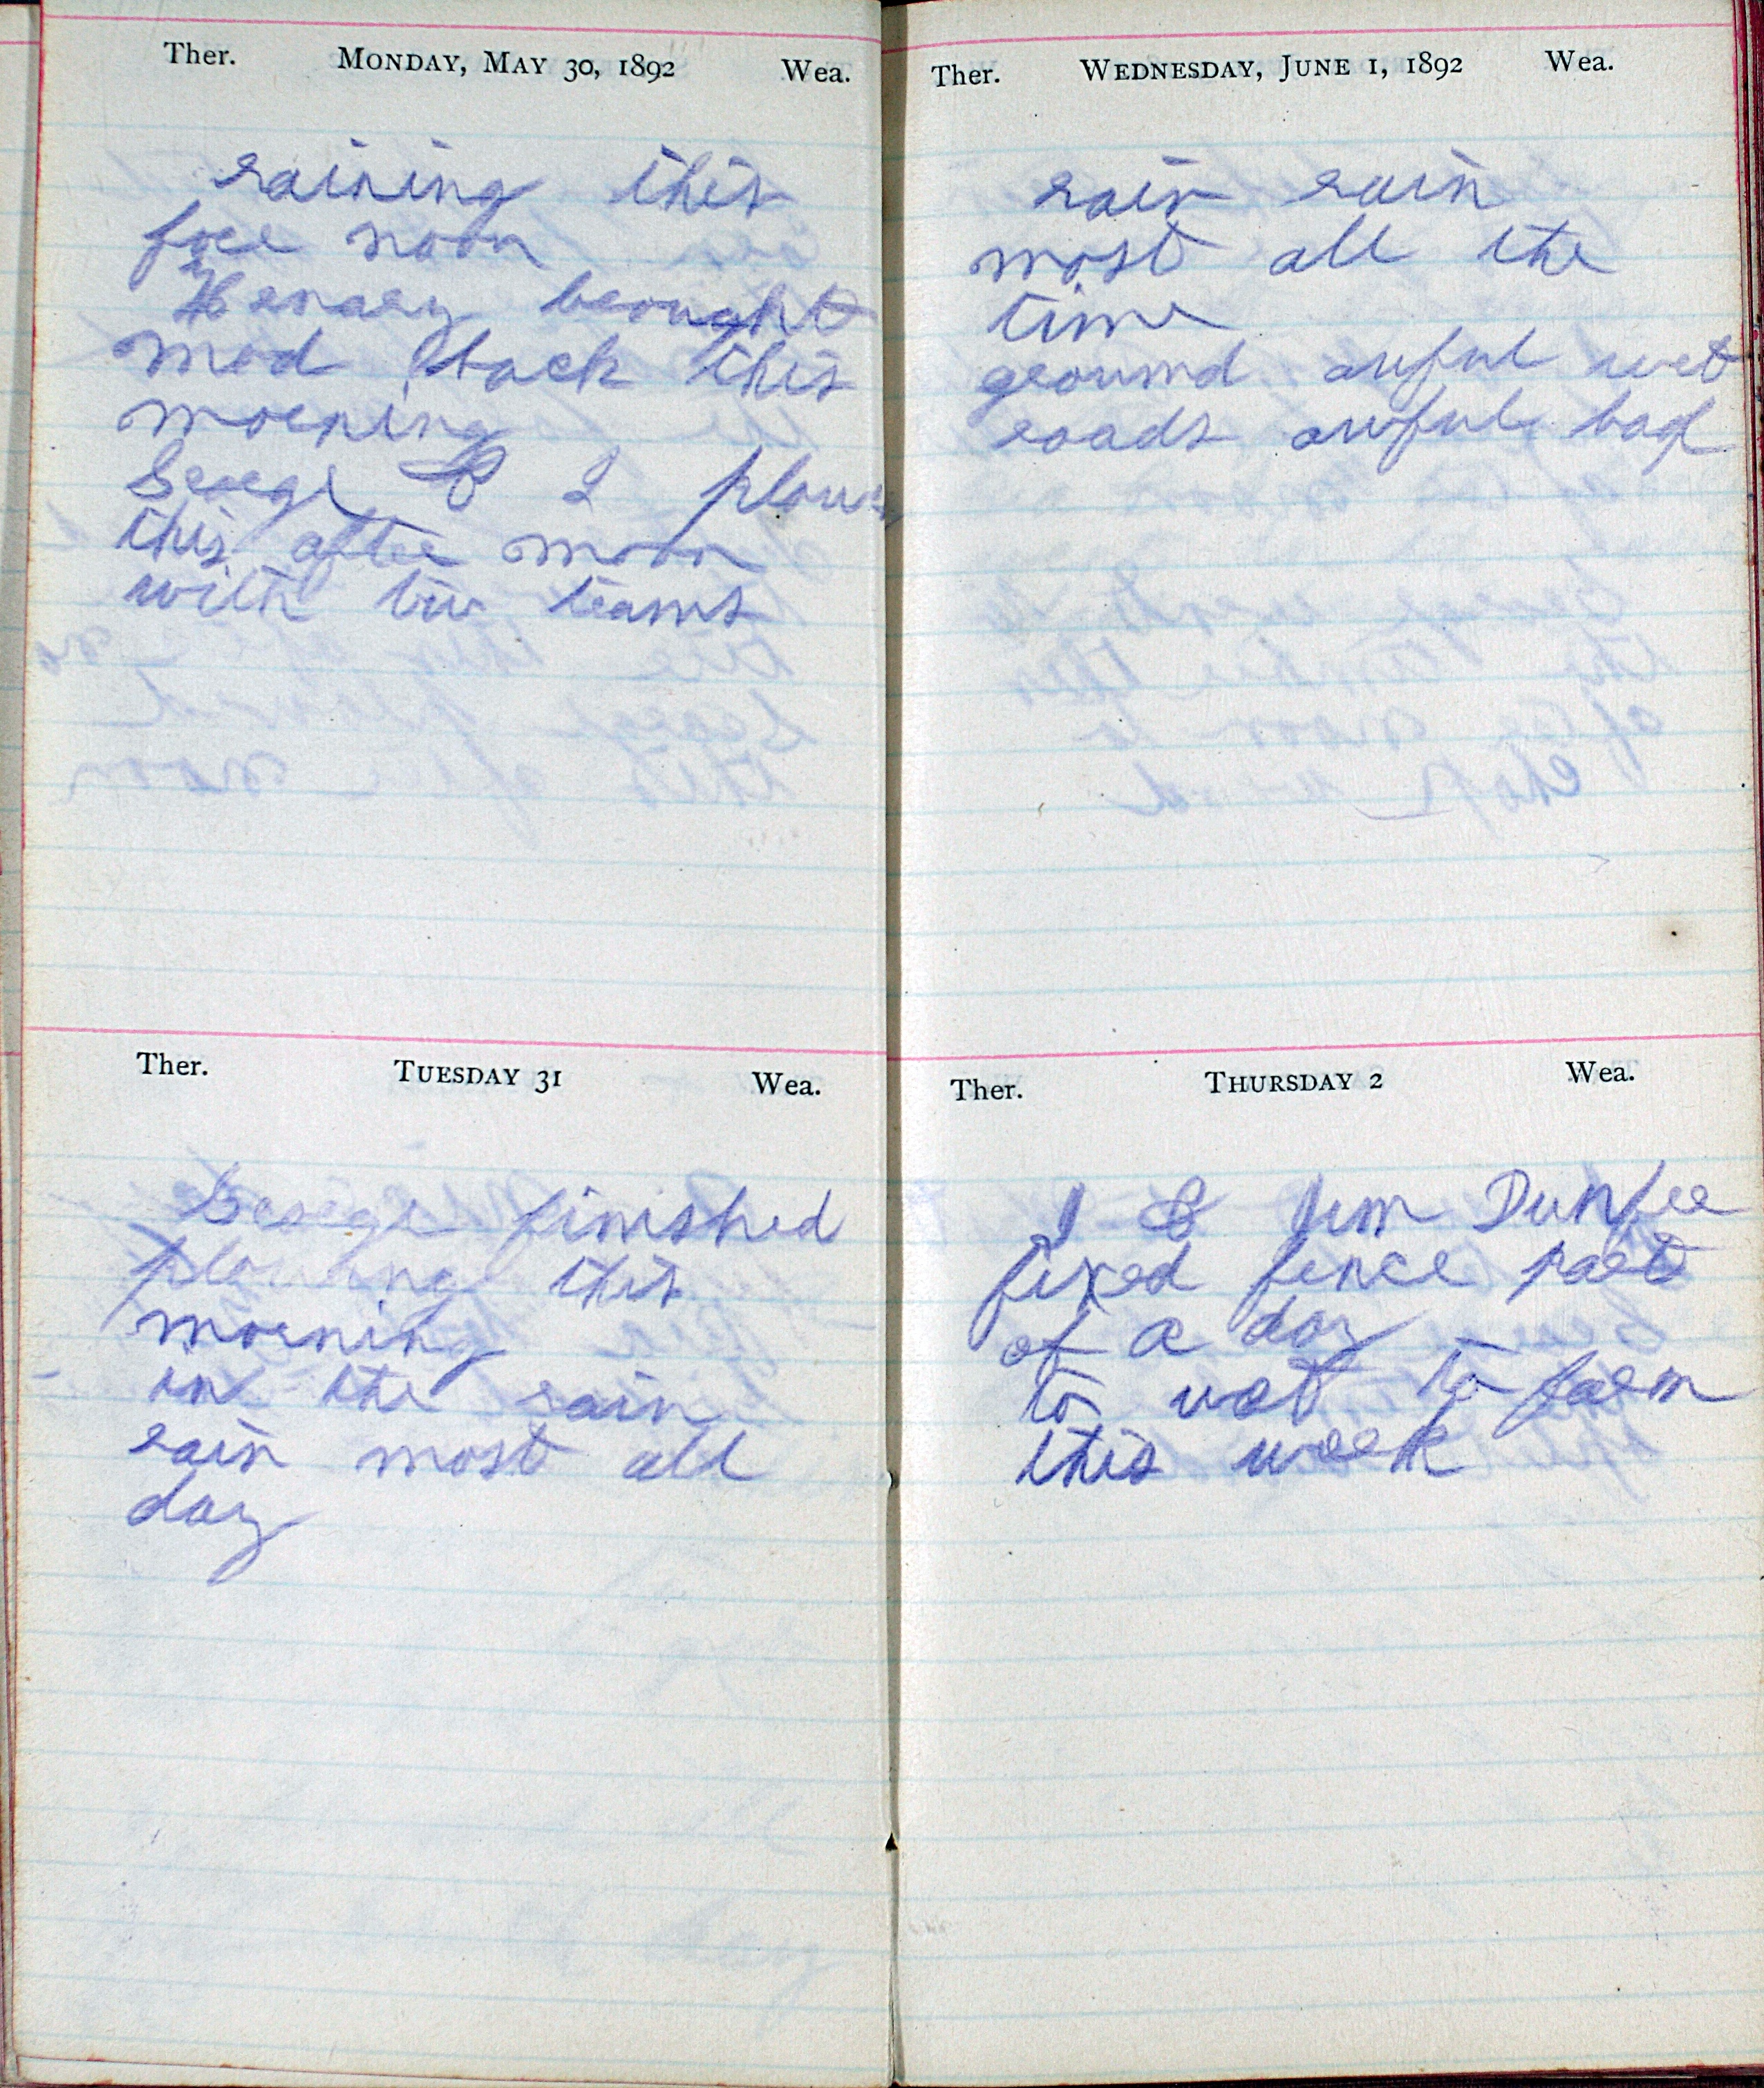 Ther. MONDAY, MAY 30, 1892 Wea.
raining this
fore noon
Henary brought
mod back this
morning
George & I plow
this after noon
with two teams
Ther. TUESDAY 31 Wea.
George finished
plowing this
morning
in the rain
rain most all
day
Ther. WEDNESDAY, JUNE 1, 1892 Wea.
rain rain
most all the
time
ground awful wet
roads awful bad
Ther. THURSDAY 2 Wea.
I & Jim Dunfee
fixed fence part
of a day
to wet to farm
this week